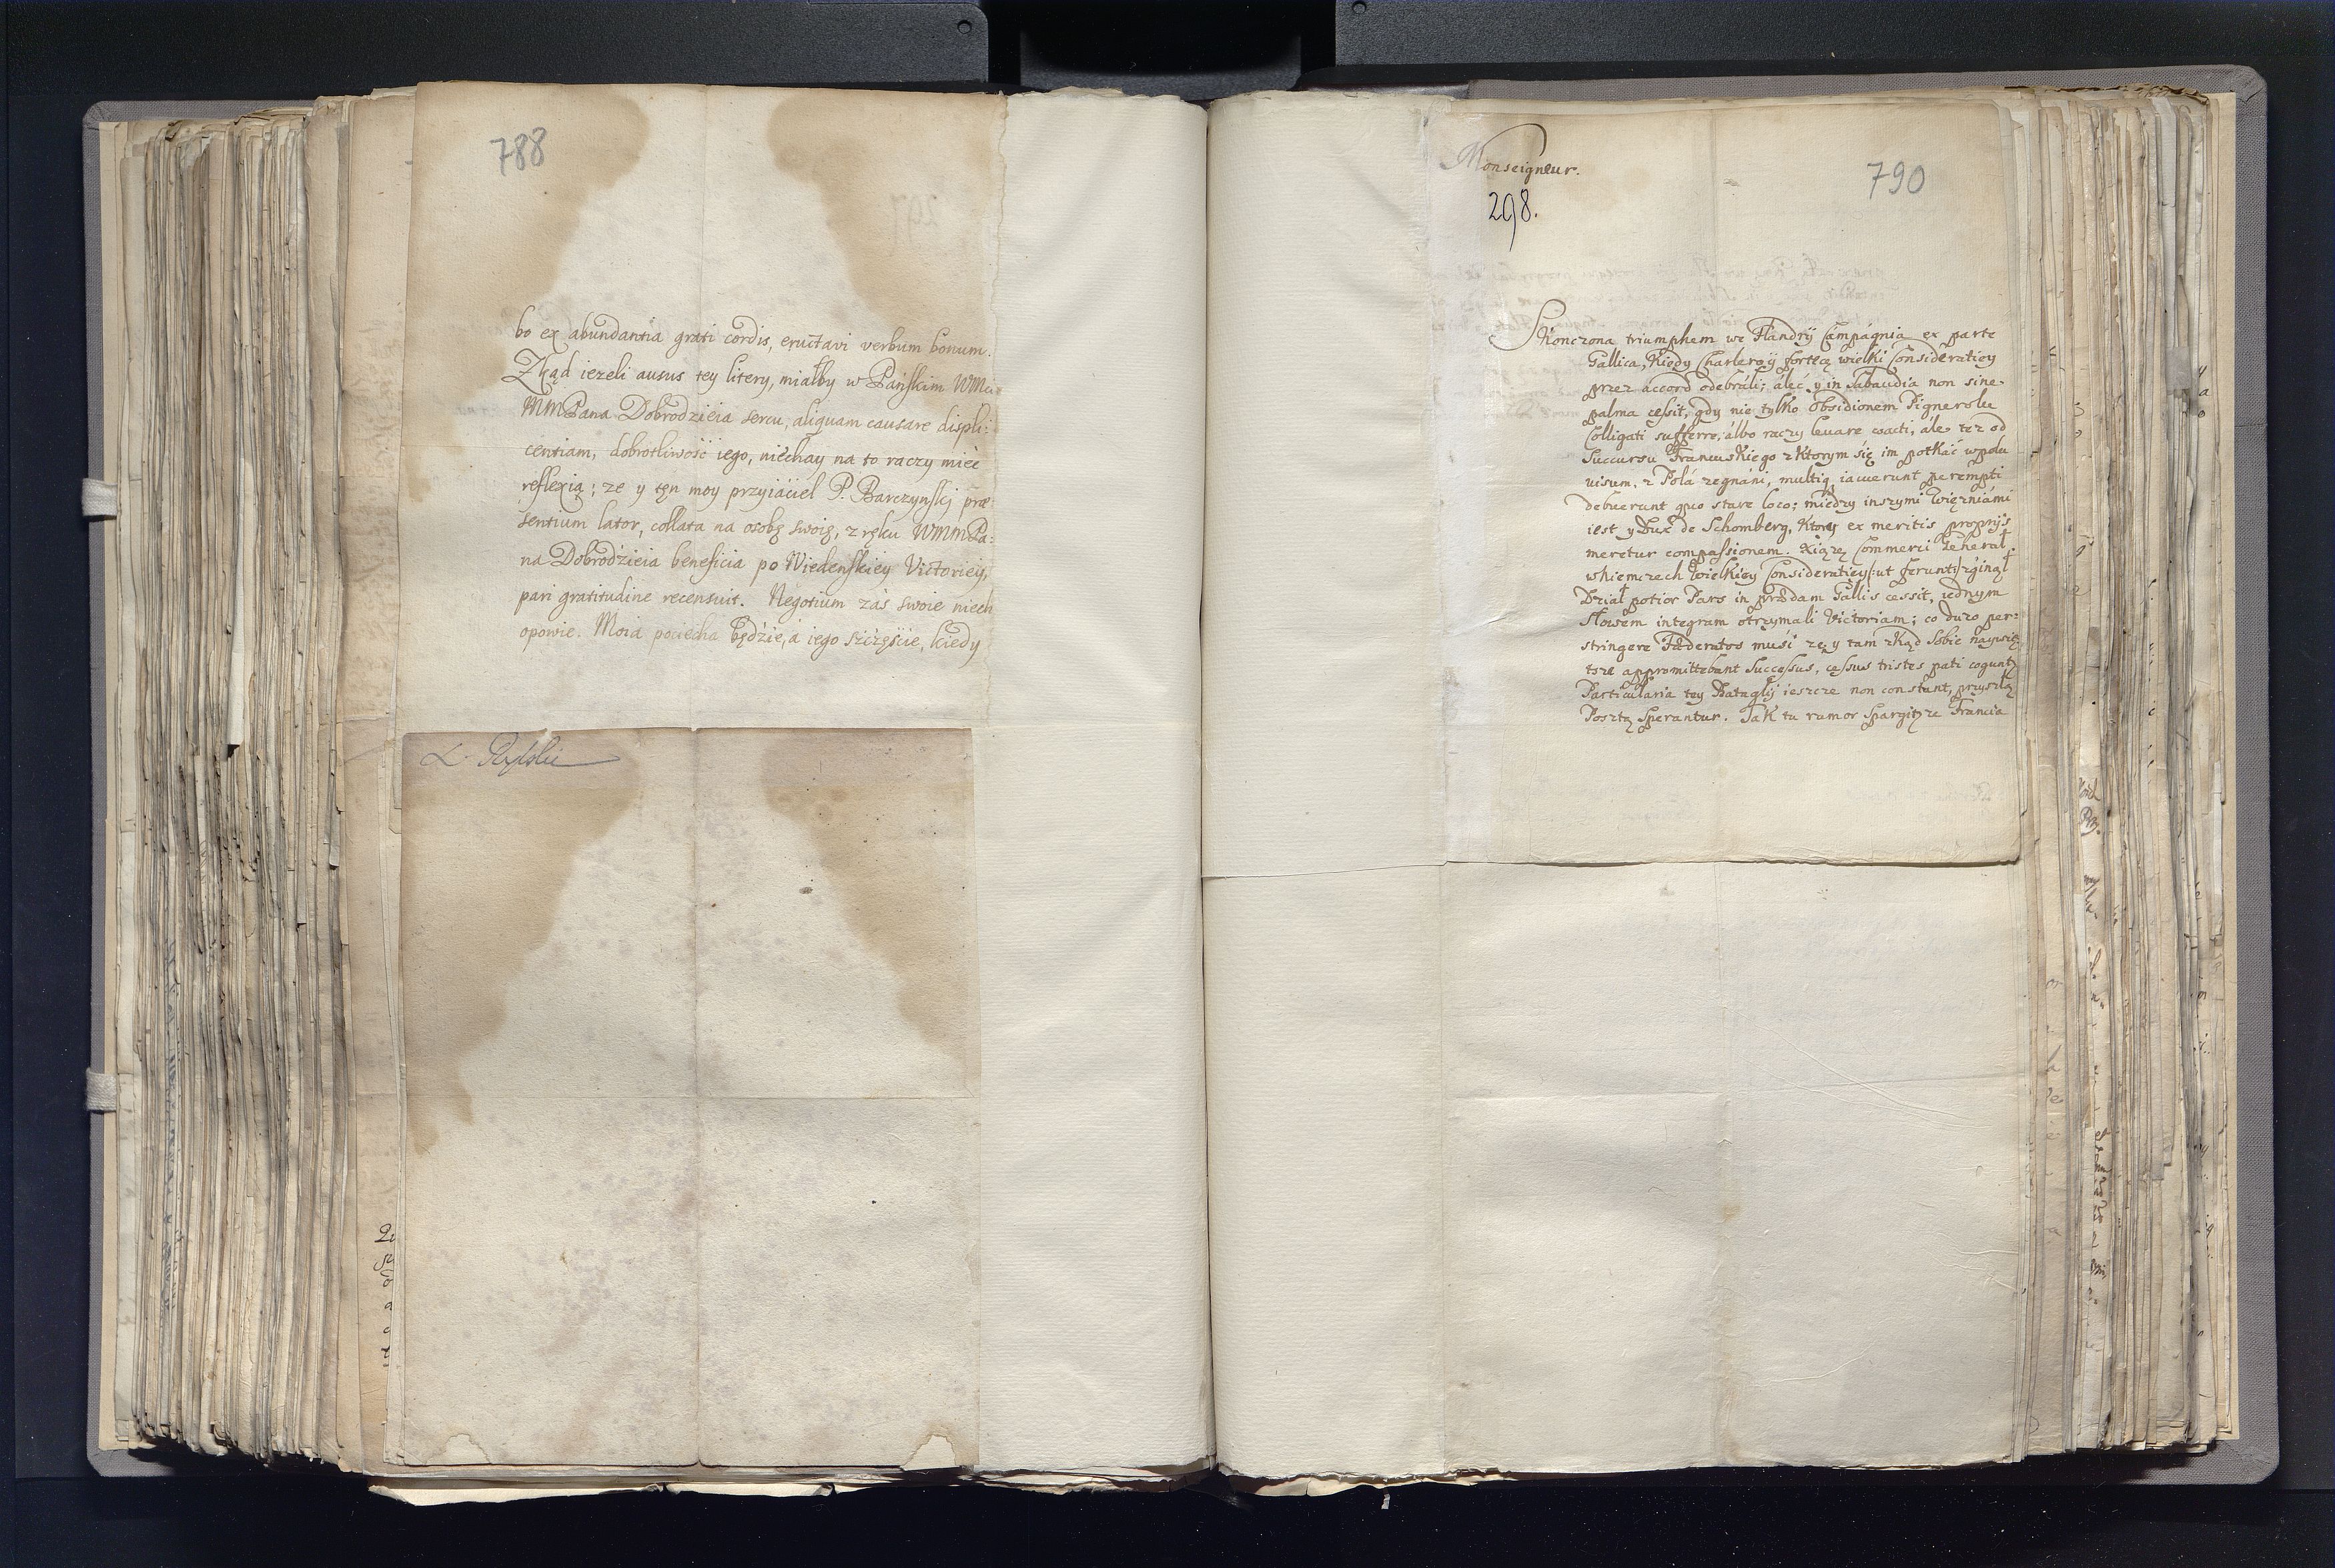 788
bo ex abundantia grati cordis, eructavi verbum bonum.
Zkąd ieżeli ausus tey litery, miałby w Pańskim WM
MMPana Dobrodzieia sercu, aliquam causare displi:
centiam, dobrotliwość iego, niechay na to raczy mieć
reflexią; ze y ten moy przyiaciel P. Barczynskj præ:
sentium lator, collata na osobę swoię, z ręku WMMPa:
na Dobrodzieia beneficia po Wiedenskiey Victoriey,
pari gratitudine recensuit. Negotium zaś swoie niech
opowie. Moia pociecha będzie, á iego szczęście, kiedy
Monseigneur.
298.
790
Skonczona triumphem we Flandrij Campagnia ex parte
Gallica, Kiedy Charleroÿ fortecą wielki Consideratiey
przez accord odebrali; áleć y in Sabaudia non sine
palma cessit, gdy nie tylko Obsidionem Pignerolu
Colligati sufferre, álbo raczy levare coacti, ale tez od
Succursu Francuskiego z ktorym się im potkać w polu
uisum, z Pola zegnani, multiq iacuerunt perempti
debuerunt quo stare loco; miedzy inszymi Więzniámi
iest y Dux de Schomberg, Ktory ex meritis proprijs
meretur compassionem. Xiązę Commerci General
w Niemczech Wielkiey Consideratiey (: ut ferunt :) zginął
Dział potior Pars in prædam Gallis cessit, iednym
Słowem integram otrzymali Victoriam; co duzo per:
stringere Fœderatos musi ze y tam zkąd Sobie naywię:
tsze appromittebant Successus, cessus tristes pati cogunt
Particularia tey Bataglij ieszcze non constant, przyszłą
Posztą Sperantur. Tak tu rumor Spargit ze Francia